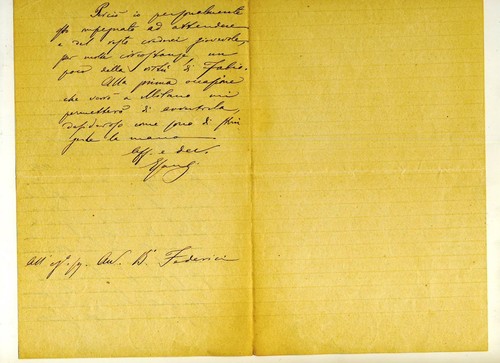 Perciò io personalmente
impegnato ad attendere
e del resto crederei giovevole,
per molte circostanze, un
poco della virtù di Fabio.
Alla prima occasione
che verrò a Milano mi
permetterò di
desideroso come sono di
la mano
Aff. e dev.
All' sig. Avv. Dr. Federici